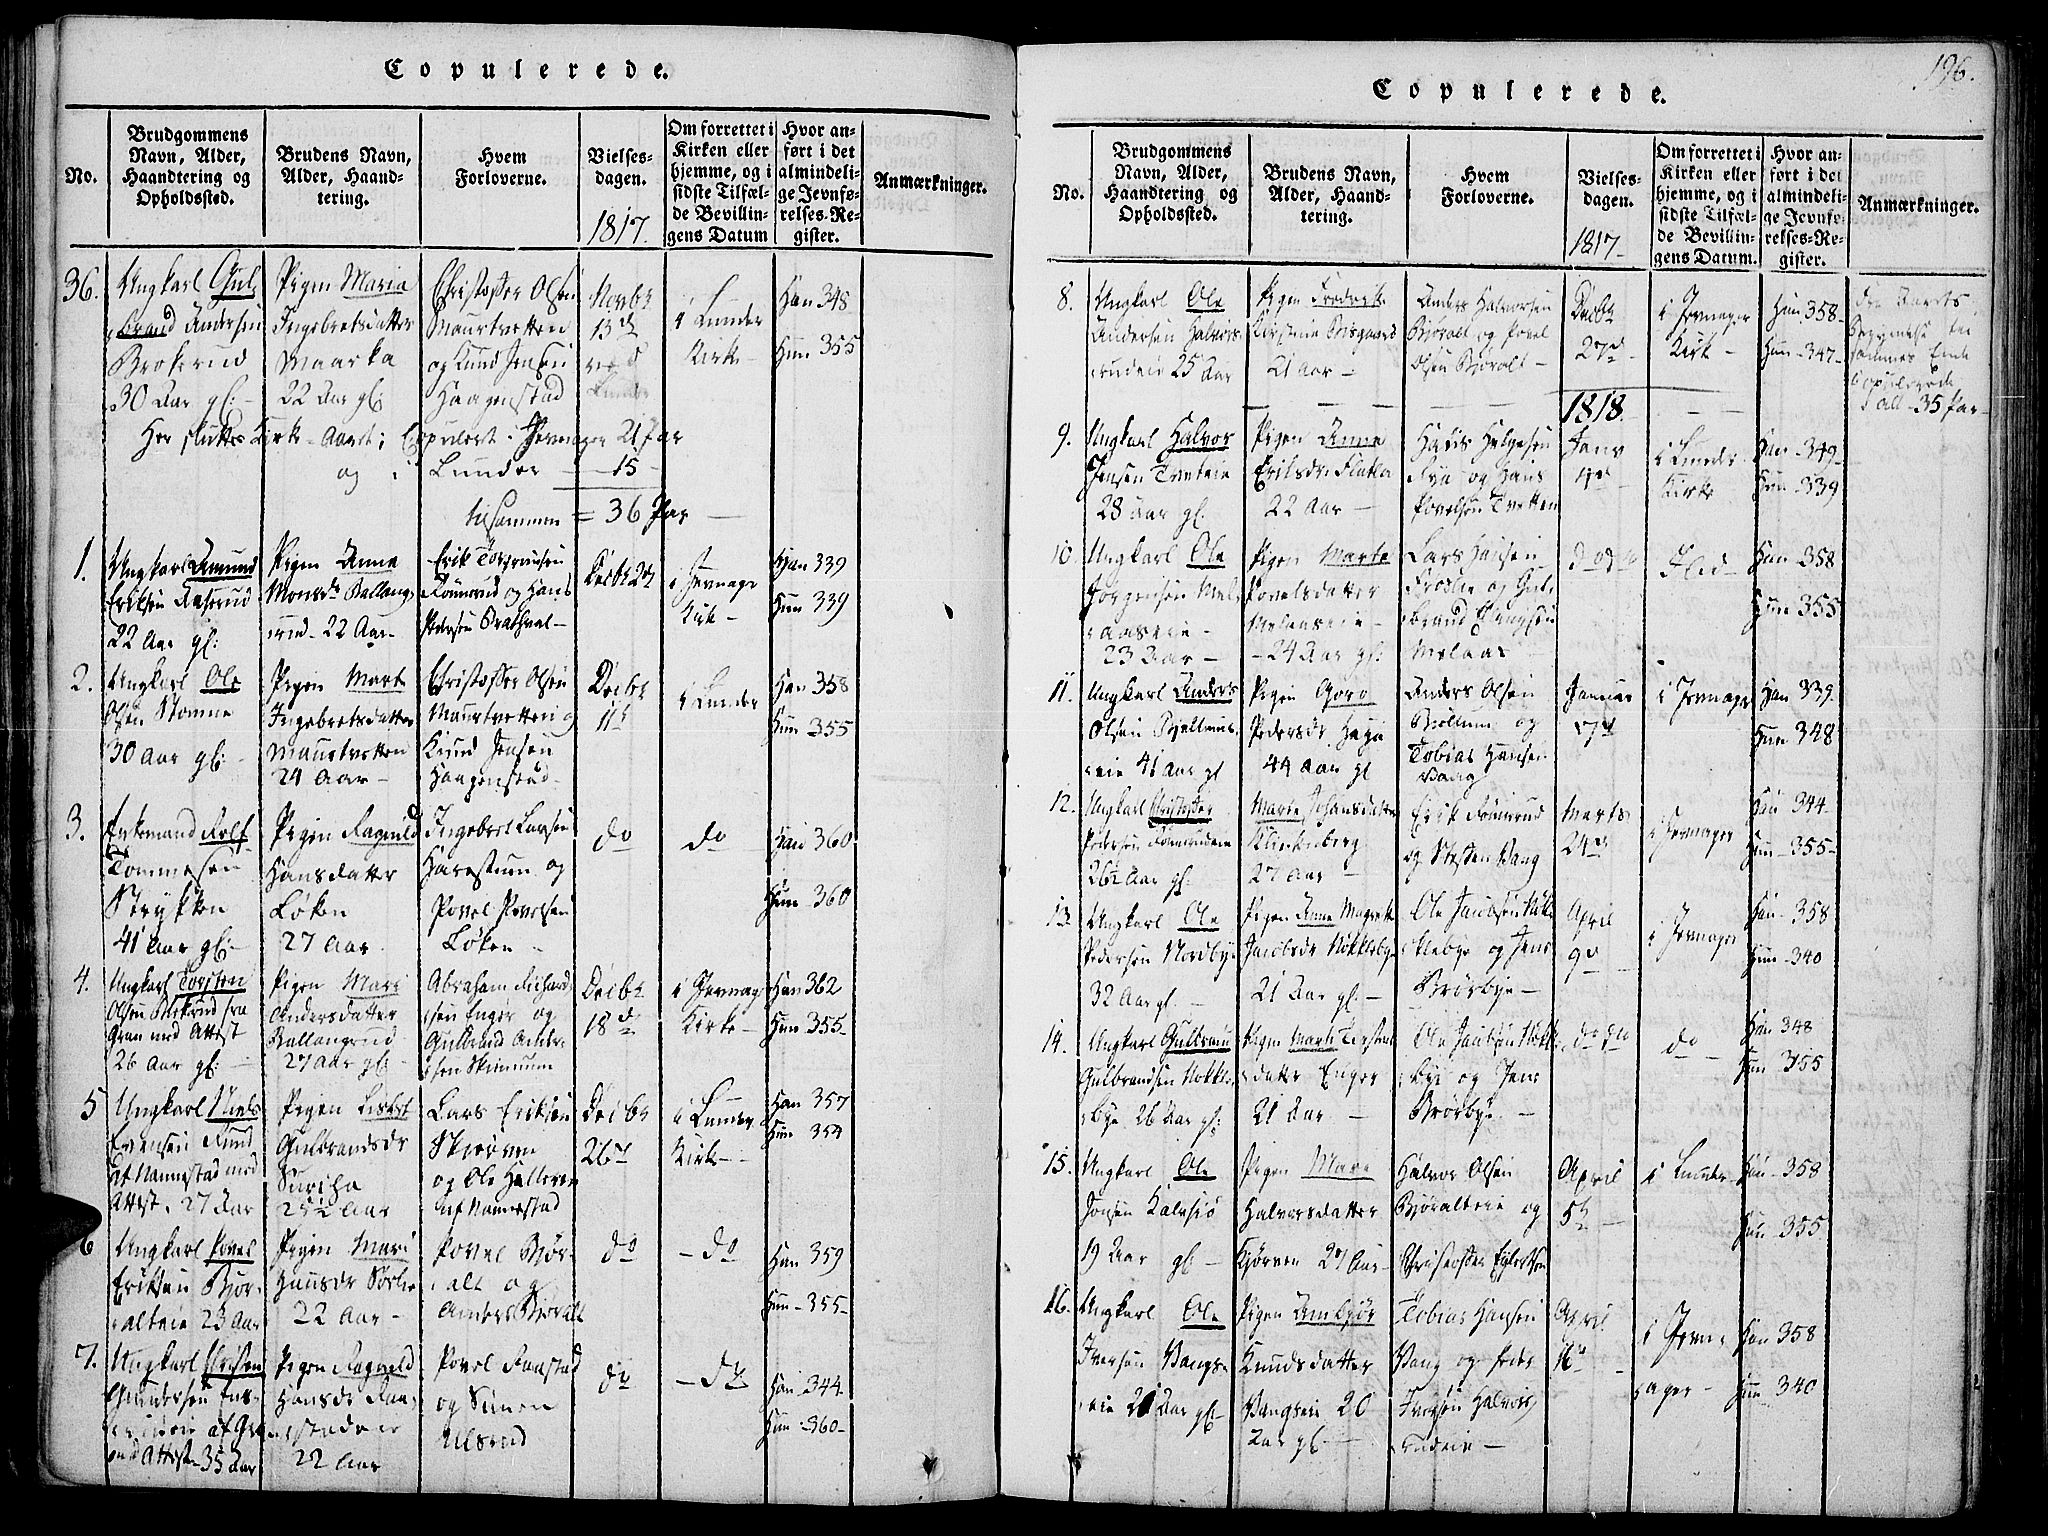 Copulerede.
No.
Brudgommens Navn, Alder, Haandtering og Opholdssted.
Brudens Navn, Alder, Haandtering.
Hvem Forloverne.
Vielsesdagen.
1817.
Om forrettet i Kirken eller hjemme, og i sidste Tilfælde Bevillingens Datum
Hvor anført i det almindelige Jevnførelses-Register.
Anmærkninger.
36.
Ungkarl Gul-
brand Andersen
Brokerud
30 Aar gl:
Pigen Maria
Ingebretsdatter
Maarka
22 Aar gl:
Christoffer Olsen
Maurtvetten
og Knud Jensen
Haagenstad
Novbr
13d
i Lunder
Kirke
Han 348
Hun 355
Her sluttes Kirke-Aaret; Copuleret i Jevnager 21 Par
og i Lunder 15
tilsammen = 36 Par
1.
Ungkarl Amund
Eriksen
22 Aar gl:
Pigen Anne
Monsdr Ballang-
rud 22 Aar
Erik
og Hans
Pedersen
Decbr
i Jevnager
Kirke
Han 339
Hun 339
2.
Ungkarl Ole
Olsen Stomne
30 Aar gl:
Pigen Marte
Ingebretsdatter
Maurtvetten
24 Aar
Christoffer Olsen
Maurtvetten og
Knud Jensen
Haagenstad
Decbr
11
i Lunder
Han 358
Hun 355
3.
Enkemand Rolf
Tommesen
Strykken
41 Aar gl:
Pigen Ragnild
Hansdatter
Løken
27 Aar
Ingebret Larsen
Harestuen og
Povel Povelsen
Løken
do
do
Han 360
Hun 360
4.
Ungkarl Torsten
Olsen fra
Gran med Attest
26 Aar gl:
Pigen Mari
Andersdatter
Ballangrud
27 Aar gl
Abraham Richard-
sen Enger og
Gulbrand Ander-
sen
Decbr
18d
i Jevnag
Kirke
Han 362
Hun 355
5
Ungkarl Niels
Evensen Rund
af Nannestad med
Attest. 27 Aar
Pigen Lisbet
Gulbrandsdr
25½ Aar
Lars Eriksen
Skjørven
og Ole
af Nannestad
Decbr
26d
i Lunder
Kirke
Han 357
Hun 354
6
Ungkarl Povel
Eriksen Bjør-
alteie 23 Aar
Pigen Mari
Hansdr Sørlie
22 Aar
Povel Bjør-
alt og
Anders Bjøralt
do
do
Han 359
Hun 355
7.
Ungkarl Christen
Gundersen
af Gran
med Attest 35 Aar
Pigen Ragnild
Hansdr Raa-
stadeie
22 Aar
Povel Raastad
og Simen
Ulsrud
do
do
Han 344
Hun 360
196.
Copulerede.
No.
Brudgommens Navn, Alder, Haandtering og Opholdssted.
Brudens Navn, Alder, Haandtering.
Hvem Forloverne.
Vielsesdagen.
1817.
Om forrettet i Kirken eller hjemme, og i sidste Tilfælde Bevillingens Datum.
Hvor anført i det almindelige Jevnførelses-Register.
Anmærkninger.
8.
Ungkarl Ole
Andersen Halvors-
rudeie 25 Aar
Pigen Fredrikke
21 Aar
Anders Halvorsen
Bjøralt og Povel
Olsen Bjøralt
Decbr
27d
i Jevnager
Kirke
Han 358
Hun 347
Fra Aarets
Begyndelse til
sammes Ende
Copulerede
i alt 35 Par
1818.
9.
Ungkarl Halvor
Jensen Tveteie
28 Aar gl.
Pigen Anne
Eriksdr Flatla
22 Aar
Hans Helgesen
Rya og Hans
Povelsen Tvetten
Janv
i Lunder
Kirke
Han 349
Hun 339
10.
Ungkarl Ole
Jørgensen Mel-
aaseie
23 Aar
Pigen Marte
Povelsdatter
Melaaseie
24 Aar gl:
Lars Hansen
Froslie og Gul-
brand
Melaas
do do
Han 358
Hun 355
11.
Ungkarl Anders
Olsen
eie 41 Aar gl
Pigen Goro
Pedersdr Haga
44 Aar gl
Anders Olsen
og
Tobias Hansen
Vang
Januar
i Jevnager
Han 339
Hun 348
12.
Ungkarl Christoffer
Pedersen
26½ Aar gl.
Marie Johansdatter
Klinkenberg
27 Aar
Erik
og Steffen Vang
Marts
24d
i Jevnager
Han 344
Hun 355
13.
Ungkarl Ole
Pedersen Nordby
32 Aar gl.
Pigen Anne Magrette
Jacobsdr Nøkkleby
21 Aar gl.
Ole Jacobsen Nøk-
kleby og Jens
Brørbye
April
9d
i Jevnager
Han 358
Hun 340
14.
Ungkarl Gulbrand
Gulbrandsen Nøkkle-
bye 26 Aar gl:
Pigen Marte
datter Enger
21 Aar
Ole Jacobsen Nøkk-
bye og Jens
Brørbye
do do
do
Han 348
Hun 355
15.
Ungkarl Ole
Jonsen Kalvsiø
19 Aar gl
Pigen Mare
Halvorsdatter
Kjørven 27 Aar
Halvor Olsen
Bjøralteie og
Christoffer
April
5d
i Lunder
Han 358
Hun 355
16.
Ungkarl Ole
Iversen Vangs-
eie 21 Aar gl
Pigen Ambjør
Knudsdatter
Vangseie 20
Aar gl
Tobias Hansen
Vang og Peder
Iversen Halvors-
rudeie
April
16
i Jevn-
ager
Han 358
Hun 340